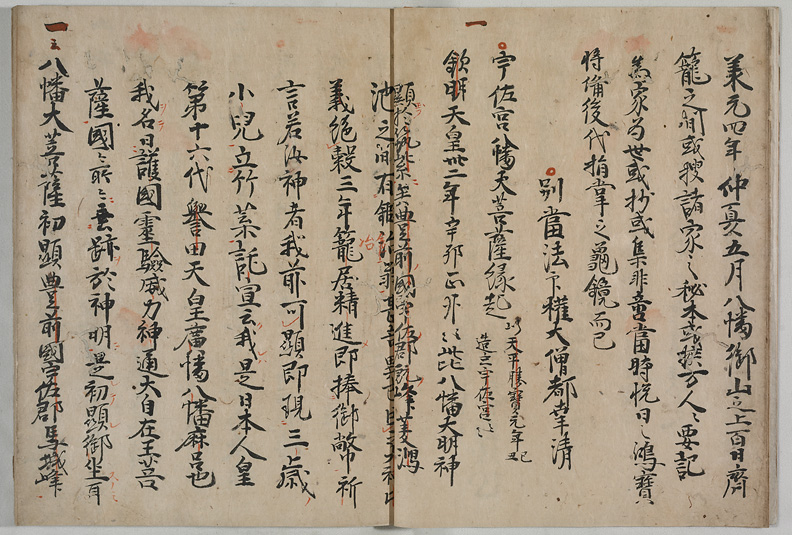 承元四年仲夏五月八幡御山之上百日齋
籠之間或捜諸家之秘本或撰万人之要記
為家為世或抄或集非啻當時悦目之鴻寶
將備後代指掌之龜鏡而已
別當法下權大僧都幸清
一
宇佐宮八幡大菩薩縁起 以天平勝寶元年己丑
造立宇佐宮云云
欽明天皇卅二年辛卯正卯云云此八幡大明神
顕於筑紫矣豊前國宇佐郡 峯菱潟
池之間有鍛冶翁
義絶穀三年籠居精進即捧御幣祈
言若汝神者我前可顕即現三歳
小兒立竹葉託宣云我是日本人皇
第十六代譽田天皇廣幡八幡麻呂也
我名曰護國靈驗威力神通大自在王菩
薩國々所々垂跡於神明是初顕御坐耳
一云
八幡大菩薩初顕豊前國宇佐郡馬城峯